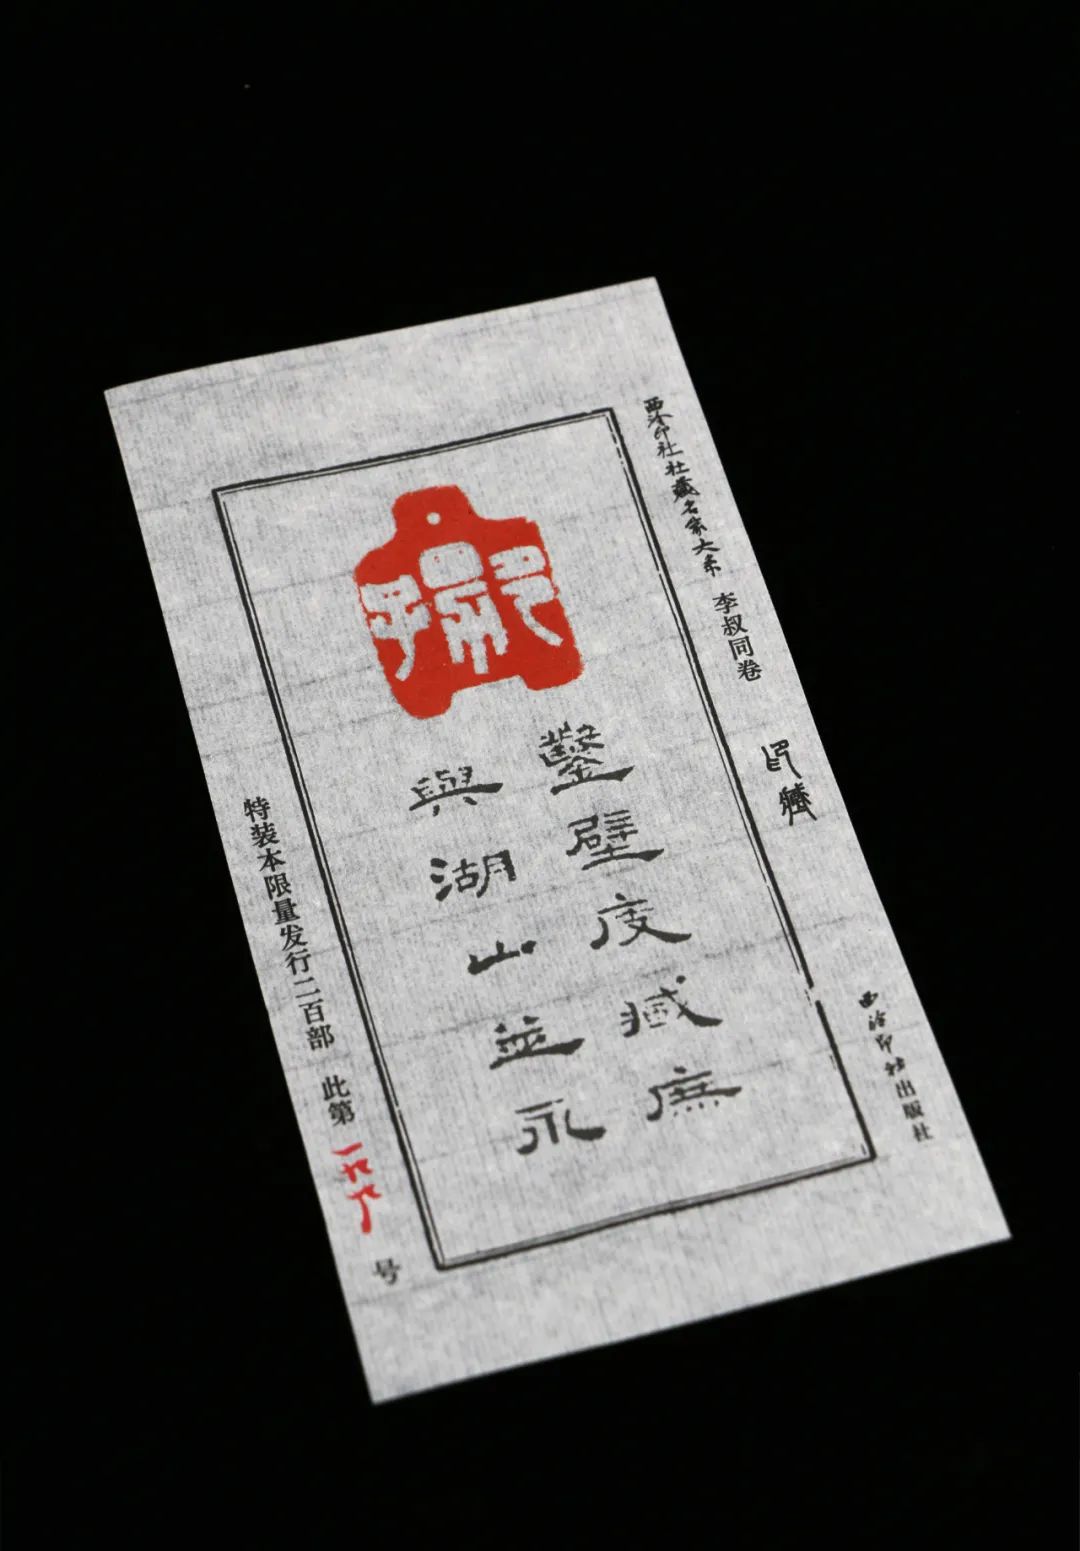 西泠印社社藏名家大系 李叔同卷
印藏
西泠印社出版社
鑿壁庋臧庶
與湖山並永
特装本限量发行二百部 此第一九九号